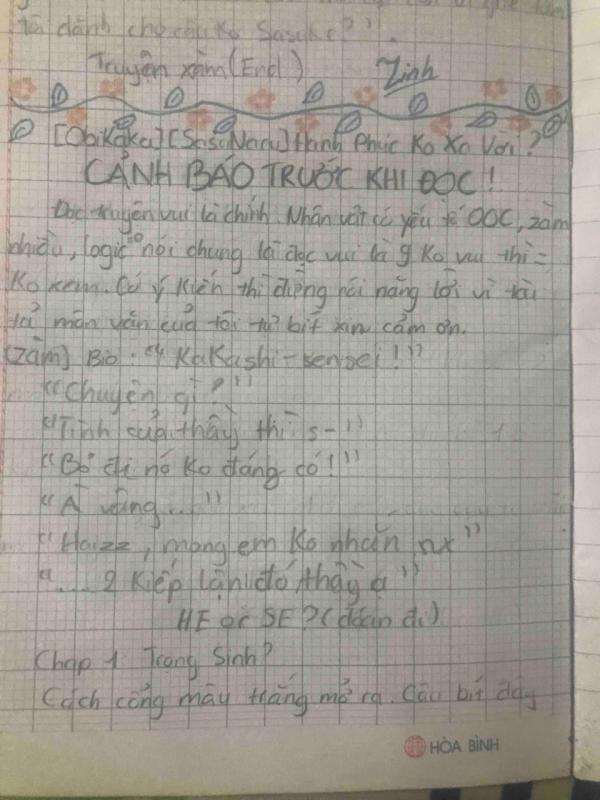 tớ dành cho cậu Ko Sasuke?".
Truyện xàm (End)
Zinh
[ObiKaka] [SasuNaru] Hạnh Phúc Ko Xa Vời?
CẢNH BÁO TRƯỚC KHI ĐỌC!
Đọc truyện vui là chính. Nhân vật có yếu tố OOC, xàm
nhiều, logic nói chung là đọc vui là g Ko vui thì =
Ko xem. Có ý Kiến thì đừng nói nặng lời vì tài
tả măn văn của tôi tự bít xin cảm ơn.
[zàm] Bio: "KaKashi-sensei!"
"Chuyện gì?"
"Tình của thầy thì s-"
"Bỏ đi nó Ko đáng có!"
"À vâng..."
"Haizz, mong em Ko nhấn nx"
"....2 Kiếp lận đó, thầy ạ"
HE or SE? (đoán đi)
Chap 1: Trọng Sinh?
Cách cổng mây trắng mở ra. Cậu bít đây
HÒA BÌNH